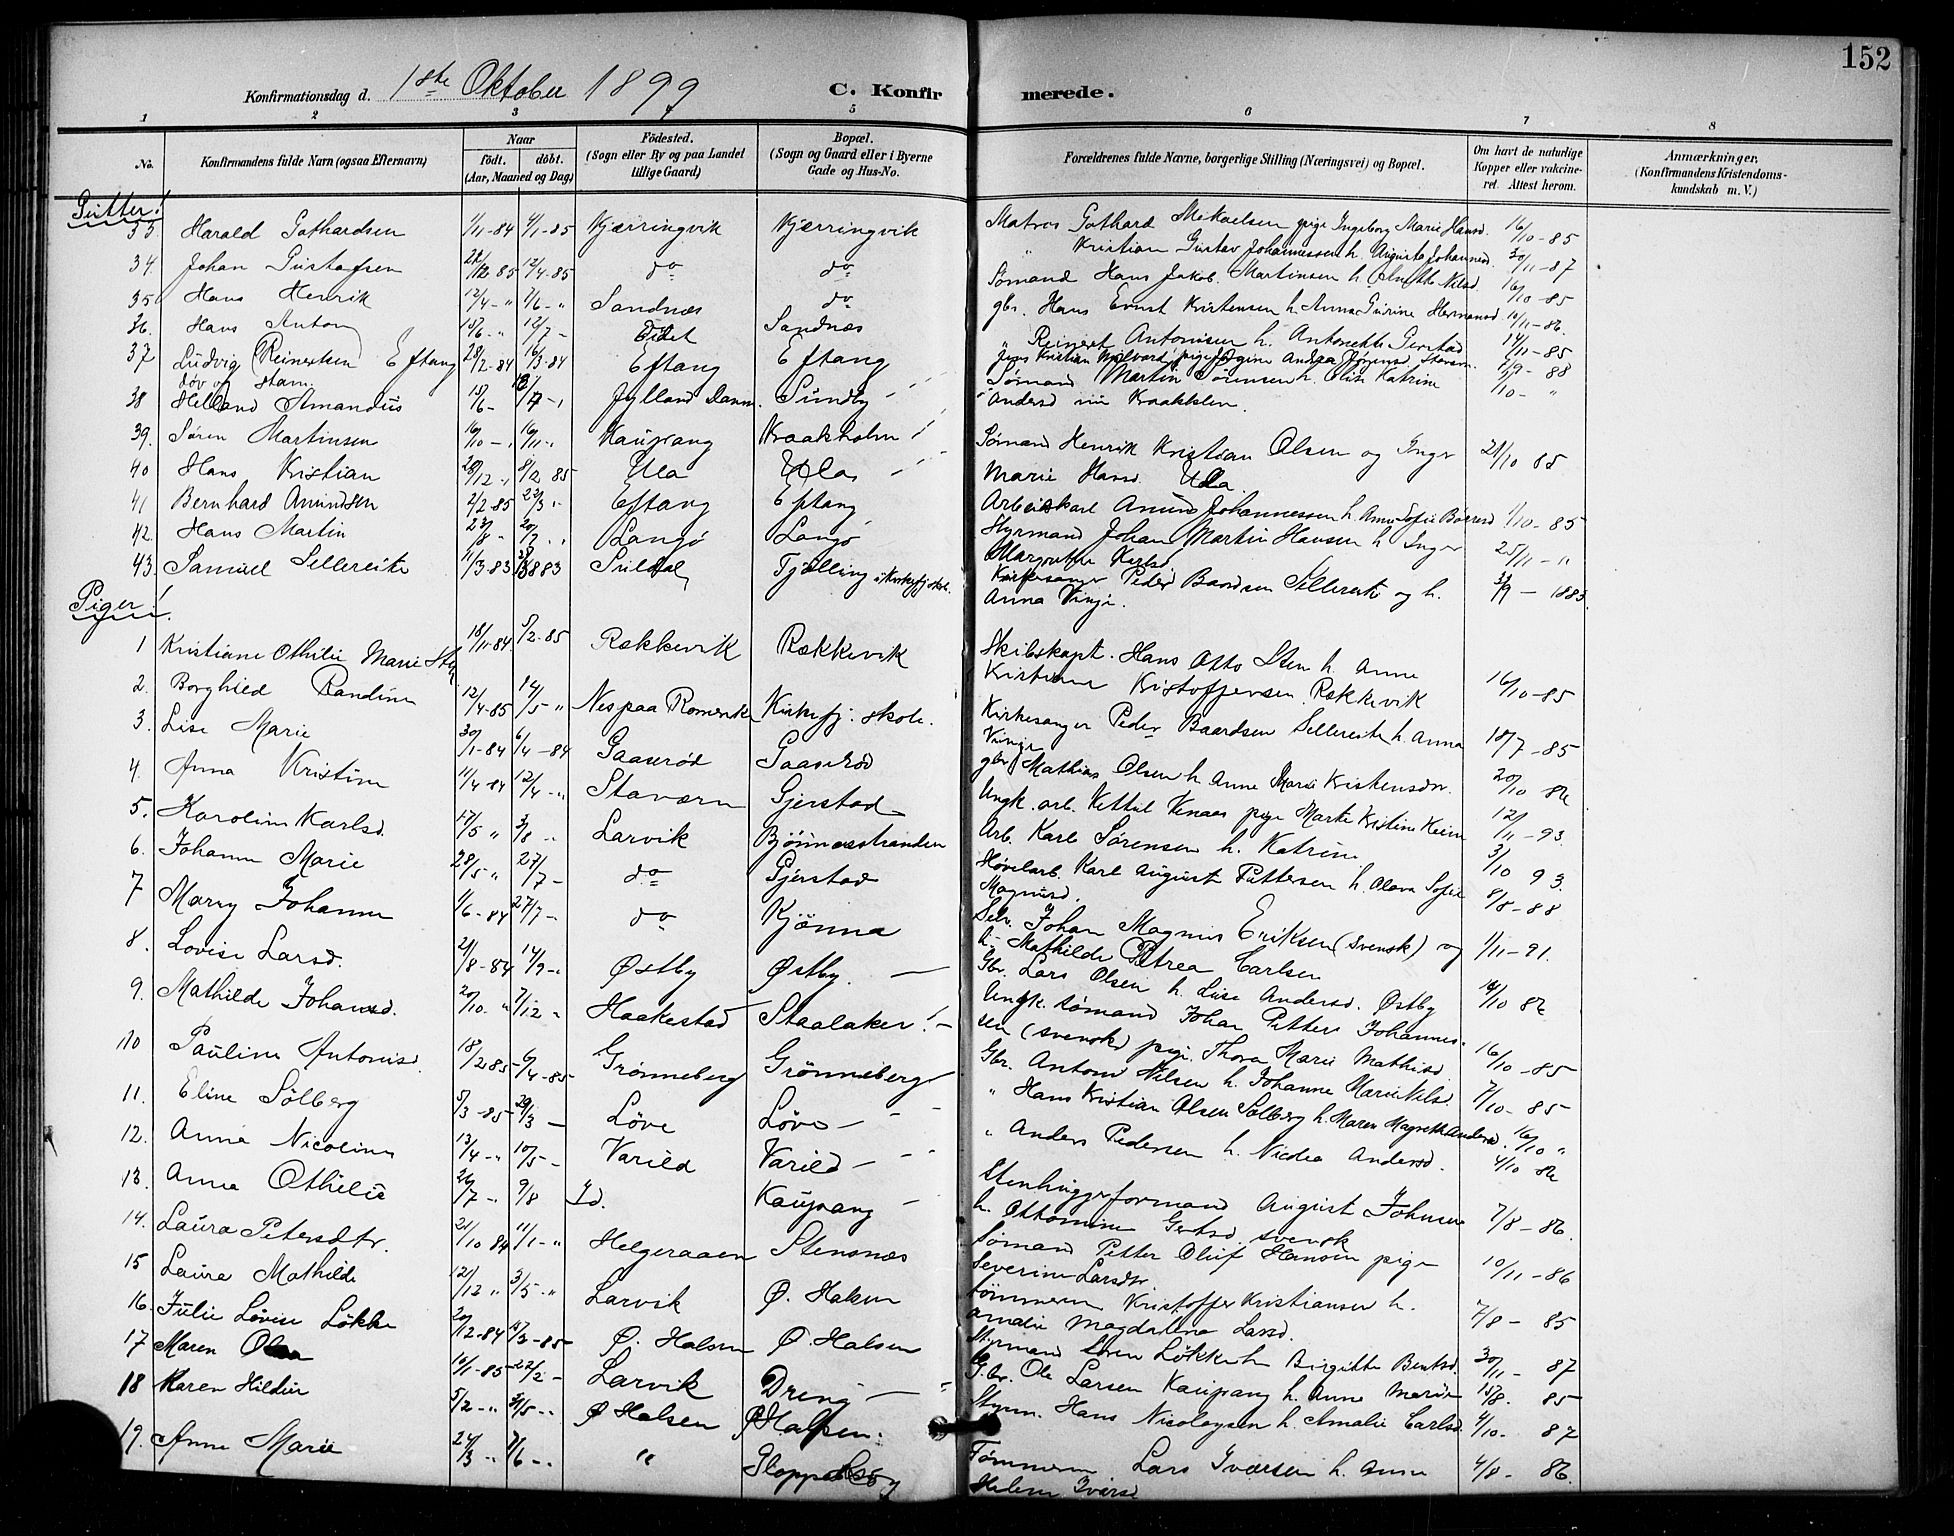 152
Konfirmationsdag d. 1ste Oktober 1899 C. Konfirmerede.
1 2 3 5 6 7 8
No. Konfirmandens fulde Navn (ogsaa Efternavn) Naar födt. döbt. (Aar, Maaned og Dag) Födested. (Sogn eller By og paa Landet tillige Gaard) Bopæl. (Sogn og Gaard eller i Byerne Gade og Hus-No. Forældrenes fulde Navne, borgerlige Stilling (Næringsvei) og Bopæl. Om havt de naturlige Kopper eller vakcineret. Attest herom. Anmærkninger, (Konfirmandens Kristendomskundskab m. V.)
Gutter!
33. Harald Gothardsen 1/11-84 4/1-85 Kjærringvik Kjærringvik Matros Gothard Mikaelsen pige Ingeborg Marie Hansd. 16/10-85
34. Johan Gustafsen 12/4-85 do do " Kristian Gustav Johannessen h. Augusta Johannesd. 30/11-87
35 Hans Henrik 12/4-" Sandnæs do Sømand Hans Jakob Martinsen h. Nilsd. 16/10-85
36. Hans Anton 12/7- Sandnæs gbr. Hans Ernst Kristensen h. Anna Gurine Hermansd 10/11-86.
37 Ludvig Reinertsen Eftang 28/2-84 16/3-84 Eftang Eftang " Reinert Antonisen h. Antonette Gerstad 14/11-85
døv og stam
38 Helland Amandus 15/6- Jylland Danm. Sundby Jens Kristian pige Jørgine Andrea Jørgensd. Stavern 88
39. Søren Martinsen 16/10-" 16/11-" Kaupang Kraakholm! Sømand Martin Sørensen h. Elise Katrine
Andersd Kraakholm.
40 Hans Kristian 28/12-" 8/2 85 Ula Ula Sømand Henrik Kristian Olsen og Inger Marie Hansd. Ula. 21/10 85
41 Bernhard Amundsen 2/2-85 22/3 " Eftang Eftang Arbeidskarl Amund Johannessen h. Anne Sofie Børresd 1/10-85
42. Hans Martin Langö Langö Styrmand Johan Martin Hansen h. Inger Margrethe Karlsd. 25/11-"
43. Samuel Sellereite 11/3-83 Tjølling i Kirkefj. skole. Kirkesanger Peder Baardsen Sellereite og h. Anna Vinje. - 1883.
Piger!
1 Kristiane Othilie Marie Sten 18/11-84 5/2-85 Rækkevik Rækkevik Skibskapt. Hans Otto Sten h. Anne Kristiane Kristoffersen Rækkevik 16/10-85
2. Borghild Randine 12/4-85 14/5-" Nes paa Romerike Kirkefj. skole. Kirkesanger Peder Baardsen Sellereite h. Anna Vinje 18/7-85
3. Lise Marie 30/1-84 6/4-84 Gaaserød Gaaserød gbr. Mathias Olsen h. Anne Marie Kristensdtr. 20/10 86
4. Anna Kristine 11/4-84 12/4-" Staværn Gjerstad Ungk. arb. Kettel Venaas pige Marte Kristine Keim 12/11-93
5. Karoline Karlsd. 17/5 " 3/8-" Larvik Bjønnesstranden Arb. Karl Sørensen h. Katrine 3/10 93.
6. Johanne Marie 28/5 " 27/7- do Gjerstad Høvelarb. Karl August Pettersen h. Olava Sofie Magnusd. 8/8-88
7 Marry Johanne 1/6-84 27/7- do Kjønna Selv. Johan Magnus Eriksen (svensk) og h. Mathilde Petrea Carlsen 1/11-91.
8. Lovise Larsd. 21/8-84 14/9-" Østby Østby. Gbr. Lars Olsen h. Lise Andersd. Østby 14/10 86
9. Mathilde Johansd. 20/10-" 7/12 " Haakestad Staalaker! Ungk. sømand Johan Petter Johannessen (svensk) pige. Thora Marie Mathisd 16/10-85
10 Pauline Antonisd. 18/2 85 6/4-85 Grønneberg Grønneberg Gbr. Anton Nilsen h. Johanne Marie Nilsd. 7/10-85
11. Eline Sølberg 5/3-85 29/3- Löve Löve " Hans Kristian Olsen Sølberg h. Maren Magrethe Andersd. 16/10 "
12. Anna Nicoline 13/4-" 10/5- Varild Varild " Anders Pedersen h. Nicolea Andersd. 4/10 86
13. Anna Othilie 26/7-" 9/8 Id. Kaupang Stenhuggerformand August Johnsen h. Ottomine Gertsd. svensk 7/8-86.
14. Laura Petersdtr. 21/10 84 11/1-" Helgeraaen Stensnæs Sømand Petter Oluf Hansen pige Severine Larsdtr. 10/11-86
15 Laura Mathilde 12/12 " 3/5-" Larvik Ø. Halsen Tømmerm Kristoffer Kristiansen h. Amalie Magdalena Larsd. 7/8-85
16. Julie Lovise Løkke 20/12-84 15/3-85 Ø. Halsen Ø. Halsen Styrmand Søren Løkke h. Birgitte Bentsd. 30/11-87
17 Maren Olsen 10/1-85 22/2- Larvik Dreng Gbr. Ole Larsen Kaupang h. Anne Marie 15/8. 85
18 Karen Hildur 5/2-" 31/5-" Ø Halsen Ø Halsen. Styrm. Hans Nicolaysen h. Amalie Carlsd. 4/10- 87
19. Anne Marie 24/3 " 7/6-" " Gloppe Tømmerm. Lars Iversen h. Anne Helene Iversd 4/8-86.